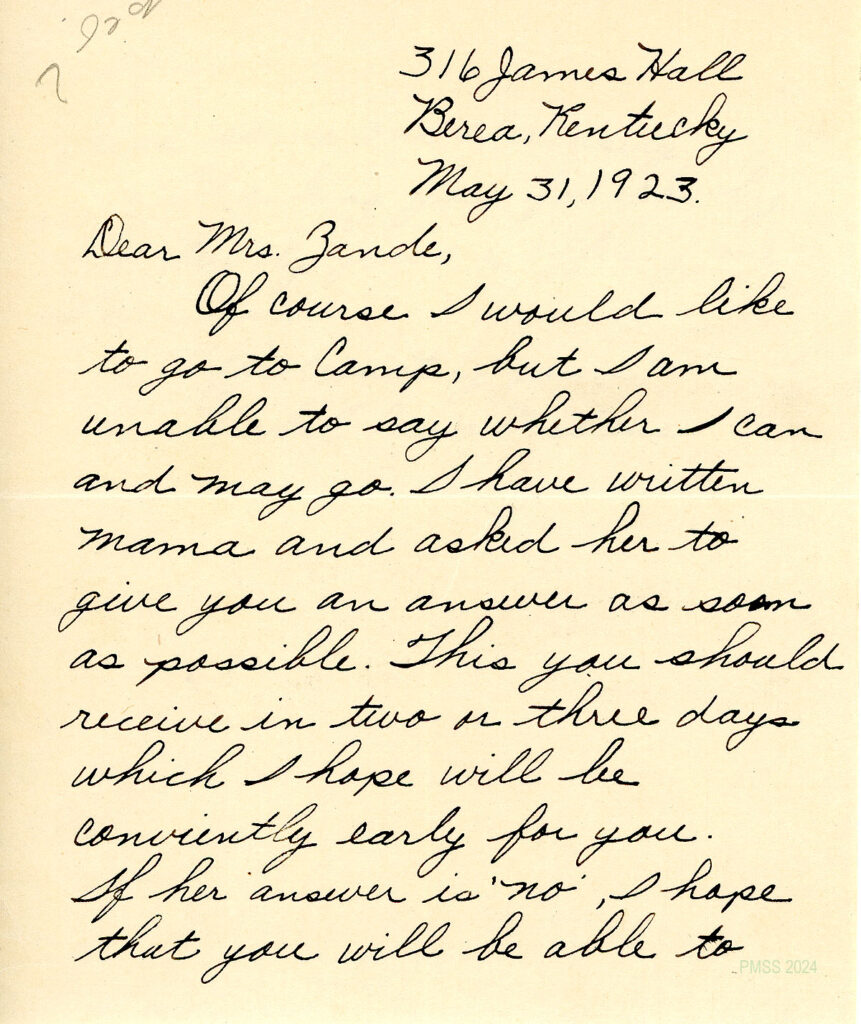 316 James Hall
Berea, Kentucky
May 31, 1923.
Dear Mrs. Zande,
Of course I would like
to go to Camp, but I am
unable to say whether I can
and may go. I have written
mama and asked her to
give you an answer as soon
as possible. This you should
receive in two or three days
which I hope will be
conviently early for you.
If her answer is 'no', I hope
that you will be able to
PMSS 2024